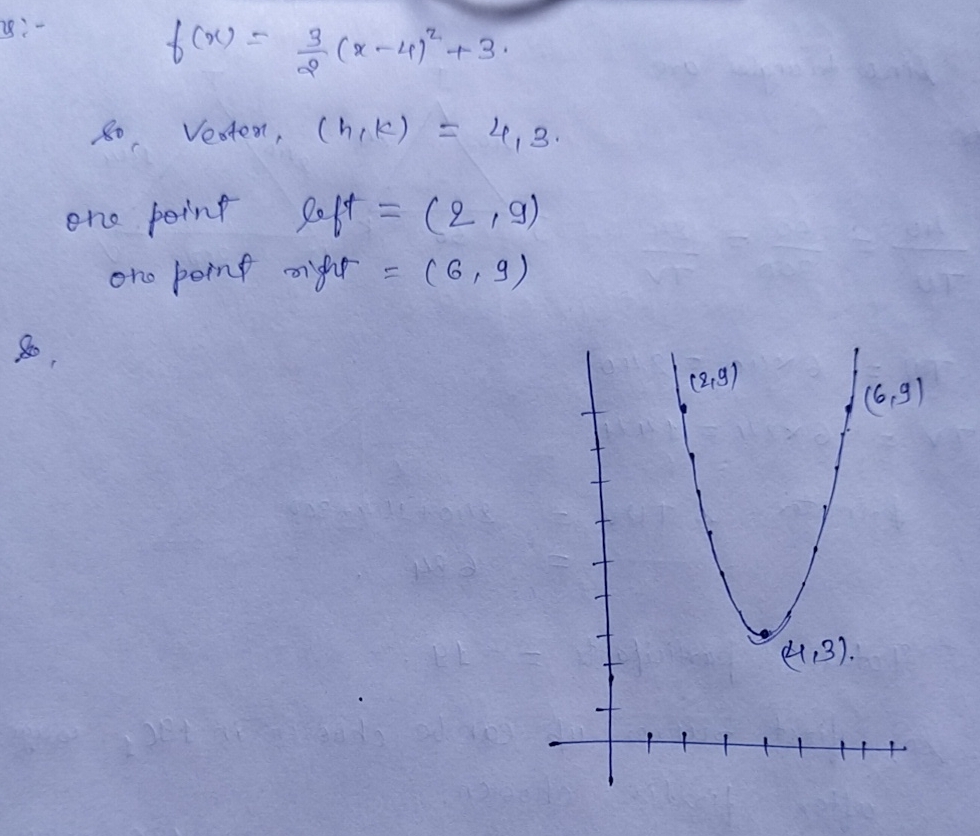 f(x) = 3/2 (x-4)² + 3.
So, Vertex, (h,k) = 4,3.
one point left = (2,9)
one point right = (6,9)
So,
(2,9)
(6,9)
(4,3).